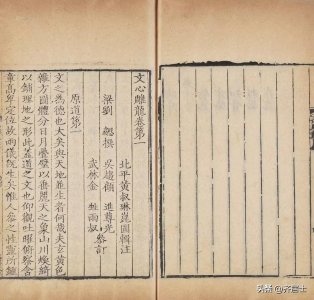 文心雕龍卷第一
北平黃叔琳崑圃輯註
梁劉 勰撰 吳趨顧 進尊光 參訂
武林金 甡雨叔
原道第一
文之為德也大矣與天地並生者何哉夫玄黃色
雜方圓體分日月疊璧以垂麗天之象山川煥綺
以鋪理地之形此蓋道之文也仰觀吐曜俯察含
章高卑定位故兩儀既生矣惟人參之性靈所鍾